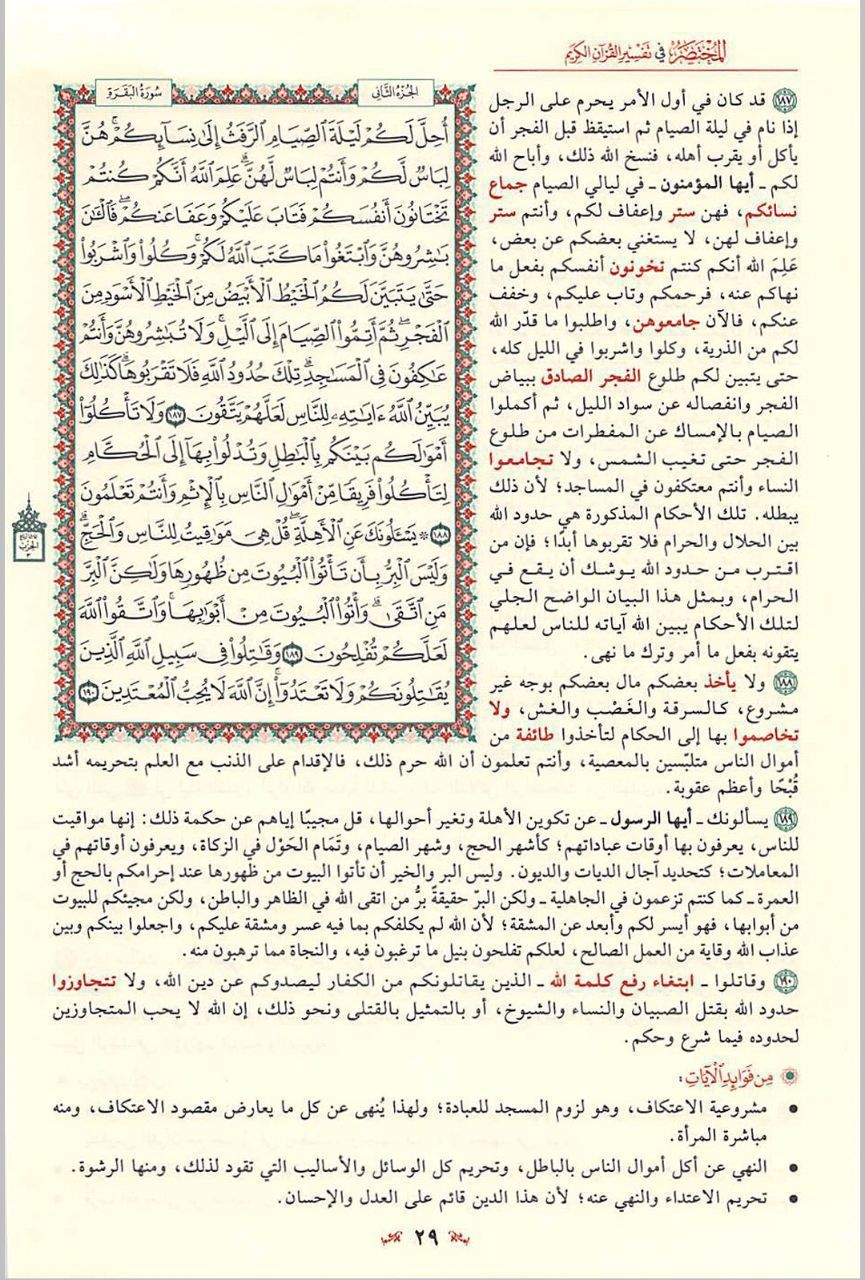 المختصر في تفسير القرآن الكريم
سورة البقرة
الجزء الثاني
أُحِلَّ لَكُمْ لَيْلَةَ ٱلصِّيَامِ ٱلرَّفَثُ إِلَىٰ نِسَآئِكُمْۚ هُنَّ
لِبَاسٌ لَّكُمْ وَأَنتُمْ لِبَاسٌ لَّهُنَّۗ عَلِمَ ٱللَّهُ أَنَّكُمْ كُنتُمْ
تَخْتَانُونَ أَنفُسَكُمْ فَتَابَ عَلَيْكُمْ وَعَفَا عَنكُمْۖ فَٱلْـَٰٔنَ
بَٰشِرُوهُنَّ وَٱبْتَغُوا۟ مَا كَتَبَ ٱللَّهُ لَكُمْۚ وَكُلُوا۟ وَٱشْرَبُوا۟
حَتَّىٰ يَتَبَيَّنَ لَكُمُ ٱلْخَيْطُ ٱلْأَبْيَضُ مِنَ ٱلْخَيْطِ ٱلْأَسْوَدِ مِنَ
ٱلْفَجْرِۖ ثُمَّ أَتِمُّوا۟ ٱلصِّيَامَ إِلَى ٱلَّيْلِۚ وَلَا تُبَٰشِرُوهُنَّ وَأَنتُمْ
عَٰكِفُونَ فِى ٱلْمَسَٰجِدِۗ تِلْكَ حُدُودُ ٱللَّهِ فَلَا تَقْرَبُوهَاۗ كَذَٰلِكَ
يُبَيِّنُ ٱللَّهُ ءَايَٰتِهِۦ لِلنَّاسِ لَعَلَّهُمْ يَتَّقُونَ ١٨٧ وَلَا تَأْكُلُوٓا۟
أَمْوَٰلَكُم بَيْنَكُم بِٱلْبَٰطِلِ وَتُدْلُوا۟ بِهَآ إِلَى ٱلْحُكَّامِ
لِتَأْكُلُوا۟ فَرِيقًا مِّنْ أَمْوَٰلِ ٱلنَّاسِ بِٱلْإِثْمِ وَأَنتُمْ تَعْلَمُونَ
١٨٨ ۞ يَسْـَٔلُونَكَ عَنِ ٱلْأَهِلَّةِۖ قُلْ هِىَ مَوَٰقِيتُ لِلنَّاسِ وَٱلْحَجِّۗ
وَلَيْسَ ٱلْبِرُّ بِأَن تَأْتُوا۟ ٱلْبُيُوتَ مِن ظُهُورِهَا وَلَٰكِنَّ ٱلْبِرَّ
مَنِ ٱتَّقَىٰۗ وَأْتُوا۟ ٱلْبُيُوتَ مِنْ أَبْوَٰبِهَاۚ وَٱتَّقُوا۟ ٱللَّهَ
لَعَلَّكُمْ تُفْلِحُونَ ١٨٩ وَقَٰتِلُوا۟ فِى سَبِيلِ ٱللَّهِ ٱلَّذِينَ
يُقَٰتِلُونَكُمْ وَلَا تَعْتَدُوٓا۟ۚ إِنَّ ٱللَّهَ لَا يُحِبُّ ٱلْمُعْتَدِينَ ١٩٠
الحزب
١٨٧ قد كان في أول الأمر يحرم على الرجل
إذا نام في ليلة الصيام ثم استيقظ قبل الفجر أن
يأكل أو يقرب أهله، فنسخ الله ذلك، وأباح الله
لكم ـ أيها المؤمنون ـ في ليالي الصيام جماع
نسائكم، فهن ستر وإعفاف لكم، وأنتم ستر
وإعفاف لهن، لا يستغني بعضكم عن بعض،
عَلِمَ الله أنكم كنتم تخونون أنفسكم بفعل ما
نهاكم عنه، فرحمكم وتاب عليكم، وخفف
عنكم، فالآن جامعوهن، واطلبوا ما قدّر الله
لكم من الذرية، وكلوا واشربوا في الليل كله،
حتى يتبين لكم طلوع الفجر الصادق ببياض
الفجر وانفصاله عن سواد الليل، ثم أكملوا
الصيام بالإمساك عن المفطرات من طلوع
الفجر حتى تغيب الشمس، ولا تجامعوا
النساء وأنتم معتكفون في المساجد؛ لأن ذلك
يبطله. تلك الأحكام المذكورة هي حدود الله
بين الحلال والحرام فلا تقربوها أبدًا؛ فإن من
اقترب من حدود الله يوشك أن يقع في
الحرام، وبمثل هذا البيان الواضح الجلي
لتلك الأحكام يبين الله آياته للناس لعلهم
يتقونه بفعل ما أمر وترك ما نهى.
١٨٨ ولا يأخذ بعضكم مال بعضكم بوجه غير
مشروع، كالسرقة والغَصْب والغش، ولا
تخاصموا بها إلى الحكام لتأخذوا طائفة من
أموال الناس متلبّسين بالمعصية، وأنتم تعلمون أن الله حرم ذلك، فالإقدام على الذنب مع العلم بتحريمه أشد
قُبْحًا وأعظم عقوبة.
١٨٩ يسألونك ـ أيها الرسول ـ عن تكوين الأهلة وتغير أحوالها، قل مجيبًا إياهم عن حكمة ذلك: إنها مواقيت
للناس، يعرفون بها أوقات عباداتهم؛ كأشهر الحج، وشهر الصيام، وتَمَام الحَوْل في الزكاة، ويعرفون أوقاتهم في
المعاملات؛ كتحديد آجال الديات والديون. وليس البر والخير أن تأتوا البيوت من ظهورها عند إحرامكم بالحج أو
العمرة ـ كما كنتم تزعمون في الجاهلية ـ ولكن البرّ حقيقةً برُّ من اتقى الله في الظاهر والباطن، ولكن مجيئكم للبيوت
من أبوابها، فهو أيسر لكم وأبعد عن المشقة؛ لأن الله لم يكلفكم بما فيه عسر ومشقة عليكم، واجعلوا بينكم وبين
عذاب الله وقاية من العمل الصالح، لعلكم تفلحون بنيل ما ترغبون فيه، والنجاة مما ترهبون منه.
١٩٠ وقاتلوا ـ ابتغاء رفع كلمة الله ـ الذين يقاتلونكم من الكفار ليصدوكم عن دين الله، ولا تتجاوزوا
حدود الله بقتل الصبيان والنساء والشيوخ، أو بالتمثيل بالقتلى ونحو ذلك، إن الله لا يحب المتجاوزين
لحدوده فيما شرع وحكم.
من فوائد الآيات:
• مشروعية الاعتكاف، وهو لزوم المسجد للعبادة؛ ولهذا يُنهى عن كل ما يعارض مقصود الاعتكاف، ومنه
مباشرة المرأة.
• النهي عن أكل أموال الناس بالباطل، وتحريم كل الوسائل والأساليب التي تقود لذلك، ومنها الرشوة.
• تحريم الاعتداء والنهي عنه؛ لأن هذا الدين قائم على العدل والإحسان.
٢٩